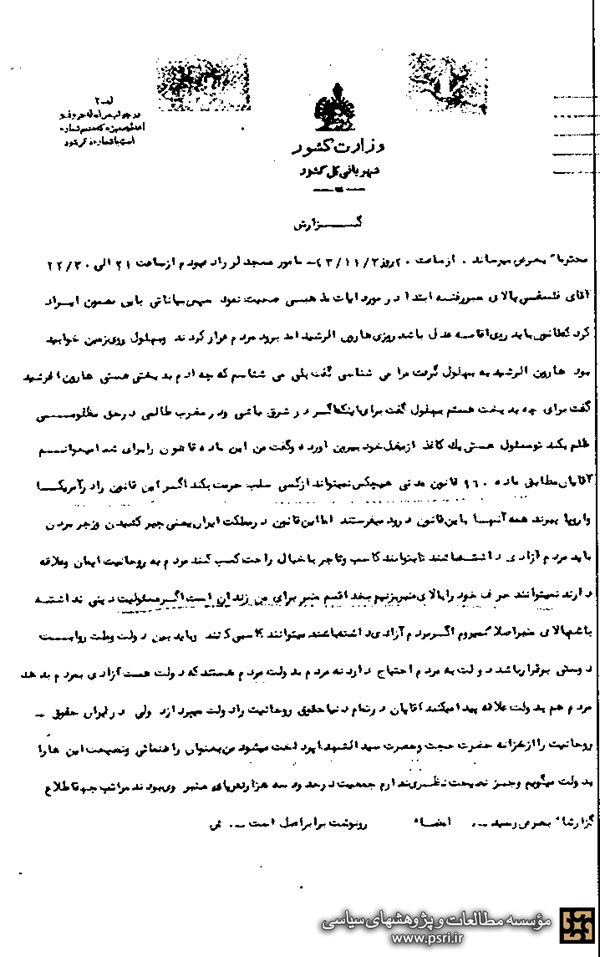 وزارت کشور
شهربانی کل کشور
گزارش
محترما" بعرض میرساند . از ساعت ۲۰ روز ۴۳/۱۱/۳ مامور مسجد لرزاده بودم از ساعت ۲۱ الی ۲۲/۳۰
آقای فلسفی بالای منبر رفته ابتدا در مورد آیات مذهبی صحبت نمود سپس بیاناتی باین مضمون ایراد
کرد که قانون باید روی اقامه عدل باشد روزی هارون الرشید آمد برود مردم فرار کردند وبهلول روی زمین خوابید
بود هارون الرشید به بهلول گفت مرا می شناسی گفت بلی می شناسم که چه آدم بدبختی هستی هارون الرشید
گفت برای چه بدبخت هستم بهلول گفت برای اینکه اگر در شرق باشی ودر مغرب ظالمی در حق مظلومی
ظلم بکند تو مسئول هستی یک کاغذ از بغل خود بیرون آورده وگفت من این ماده قانون را برای شما میخوانم
آقایان مطابق ماده ۹۶۰ قانون مدنی هیچکس نمیتواند از کسی سلب حریت بکند اگر این قانون را در آمریکا
واروپا ببرند همه آنها باین قانون درود میفرستند اما این قانون در مملکت ایران یعنی جیر کشیدن وزجر مردن
باید مردم آزادی داشته باشند تا بتوانند کاسب وتاجر با خیال راحت کسب کنند مردم به روحانیت ایمان وعلاقه
دارند نمیتوانند حرف خود را بالای منبر بزنیم بخدا قسم منبر برای من زندان است اگر مسئولیت دینی نداشته
باشم بالای منبر اصلا نمیروم اگر مردم آزادی داشته باشند میتوانند کاسبی کنند وباید بین دولت وملت روابط
دوستی برقرار باشد دولت به مردم احتیاج دارد نه مردم بدولت مردم هستند که دولت هست آزادی بمردم بدهد
مردم هم بدولت علاقه پیدا میکنند آقایان در تمام دنیا حقوق روحانیت را دولت میپردازد ولی در ایران حقوق -
روحانیت را از خزانه حضرت حجت وحضرت سید الشهدا پرداخت میشود من بعنوان راهنمائی ونصیحت این ها را
بدولت میگویم وجز نصیحت نظری ندارم جمعیت در حدود سه هزار نفر پای منبر وی بودند مراتب جهة اطلاع
گزارشا" بعرض رسید -. امضاء رونوشت برابر اصل است -.
مؤسسه مطالعات و پژوهشهای سیاسی
www.psri.ir